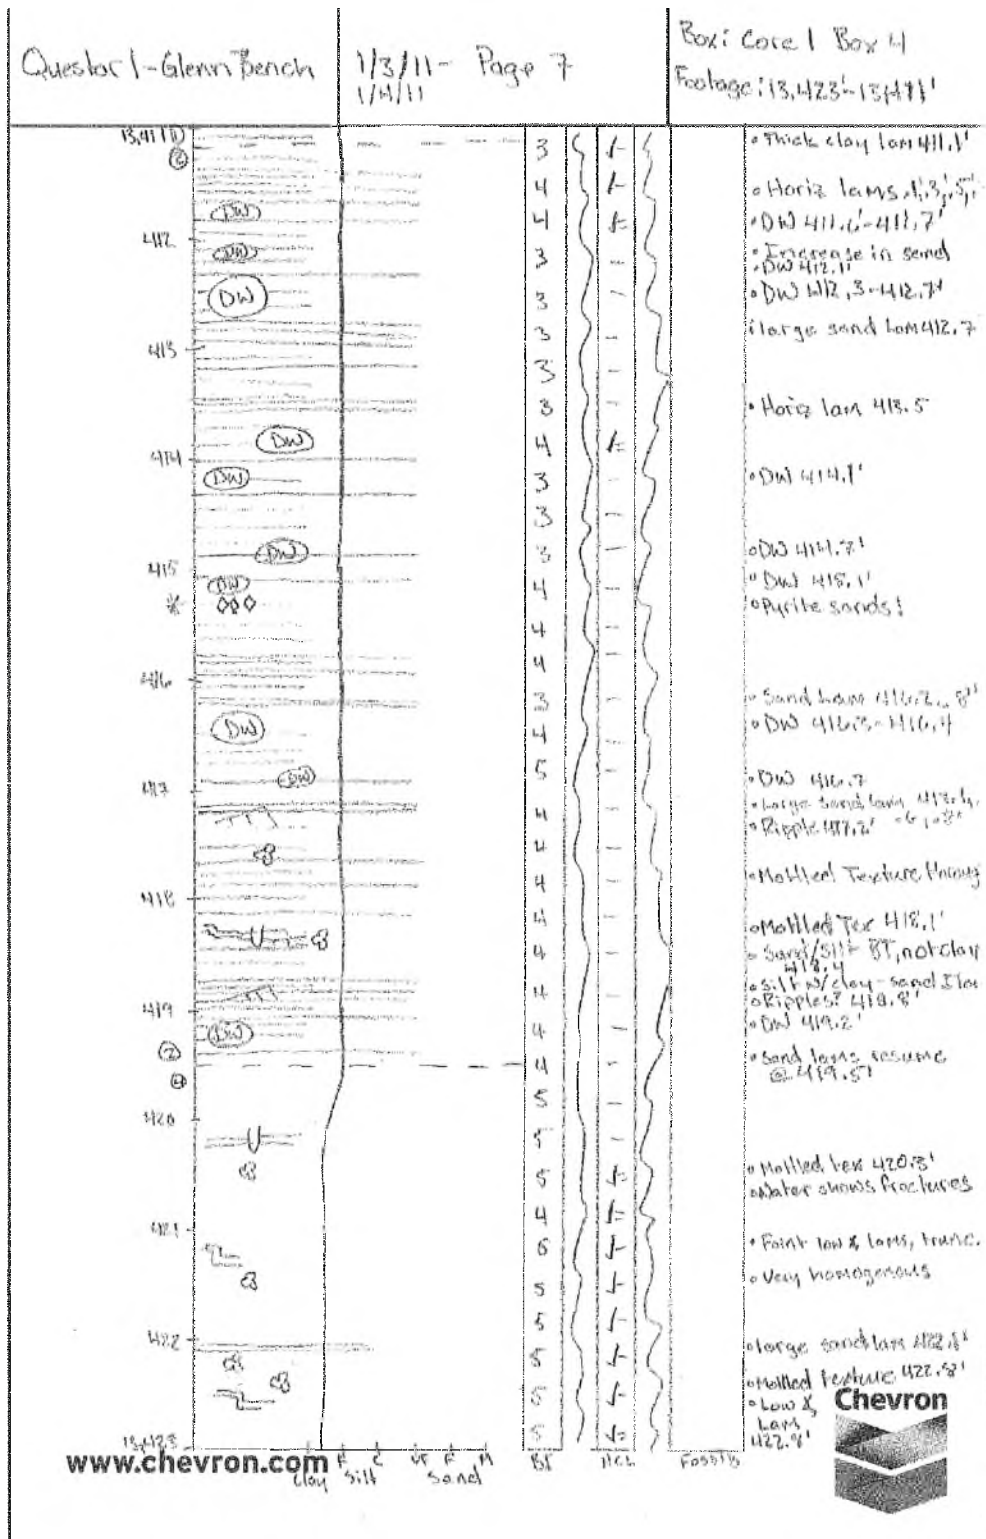 Questar 1-Glenn Bench
1/3/11- Page 7
1/4/11
Box: Core 1 Box 4
Footage: 13,423'-13,411'
13,411
②
412
413
414
415
416
417
418
419
②
④
420
421
422
13,423
DW
DW
DW
DW
DW
DW
DW
DW
DW
DW
3
4
4
3
3
3
3
3
4
3
3
3
4
4
4
3
4
5
4
4
4
4
4
4
4
4
5
5
5
4
6
5
5
5
5
• Thick clay lam 411.1'
• Horiz lams .1,'3,'.5,'
• DW 411.6'-411.7'
• Increase in sand
• DW 412.1'
• DW 412.3-412.7'
large sand lam 412.7
• Horiz lam 413.5
• DW 414.1'
• DW 414.7'
• DW 415.1'
• Pyrite sands!
• Sand Lams 416.2, .8'
• DW 416.3-416.4
• DW 416.7
• Large sand lam
• Ripple 417.2'
• Mottled Texture
• Mottled Tex 418.1'
• Sand/Silt BT, not clay
418.4
• Silt w/clay-sand
• Ripples? 418.8'
• DW 419.2'
• Sand lams resume
@ 419.5'
• Mottled tex 420.3'
• Water shows fractures
• Faint low & lams, trunc.
• Very homogenous
• large sand lam 422.1'
• Mottled texture 422.8'
• Low &
Lam
422.8'
Clay F Silt C VF F Sand M
BI HCL Fossils
www.chevron.com
Chevron